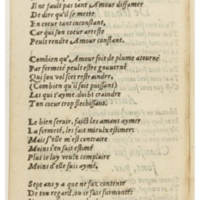 Il ne fault pas tant Amour diffamer
De dire qu'il se mette
En cœur tant inconstant,
Car qui son cœur arreste
Peult rendre Amour constant.
Combien qu'Amour soit de plume atourné
Par fermeté peult estre gouuerné
Qui son vol scet restraindre,
(Combien qu'il soit puissant)
Las qui t'aymé doibt craindre
Ton cœur trop flechissant.
Le bien seruir, faict les amans aymer
La fermeté, les fait mieulx estimer:
Mais s'elle m'est contraire
Moins i'en suis estimé
Plus ie luy veulx complaire
Moins d'elle suis aymé,
Sept ans y a que ne suz content
De ton amour ou ie suis